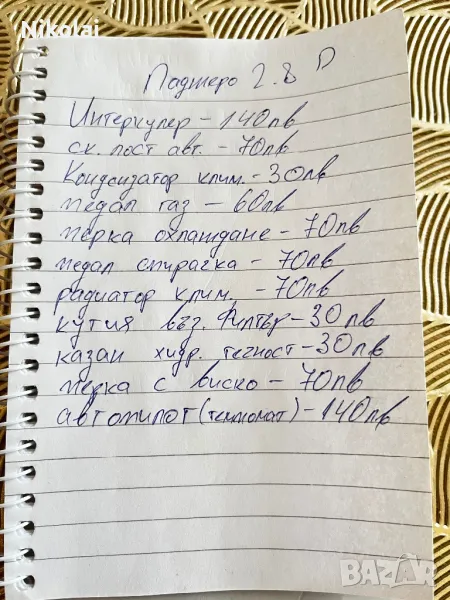 Nikolai
Паджеро 2.8 D
Интеркулер - 140лв
ск. лост авт. - 70лв
Кондензатор клим. - 30лв
педал газ - 60лв
перка охлаждане - 70лв
педал спирачка - 70лв
радиатор клим. - 70лв
кутия въз. Филтър - 30лв
казан хидр. течност - 30лв
перка с виско - 70лв
автопилот (темпомат) - 140лв
BAZAR